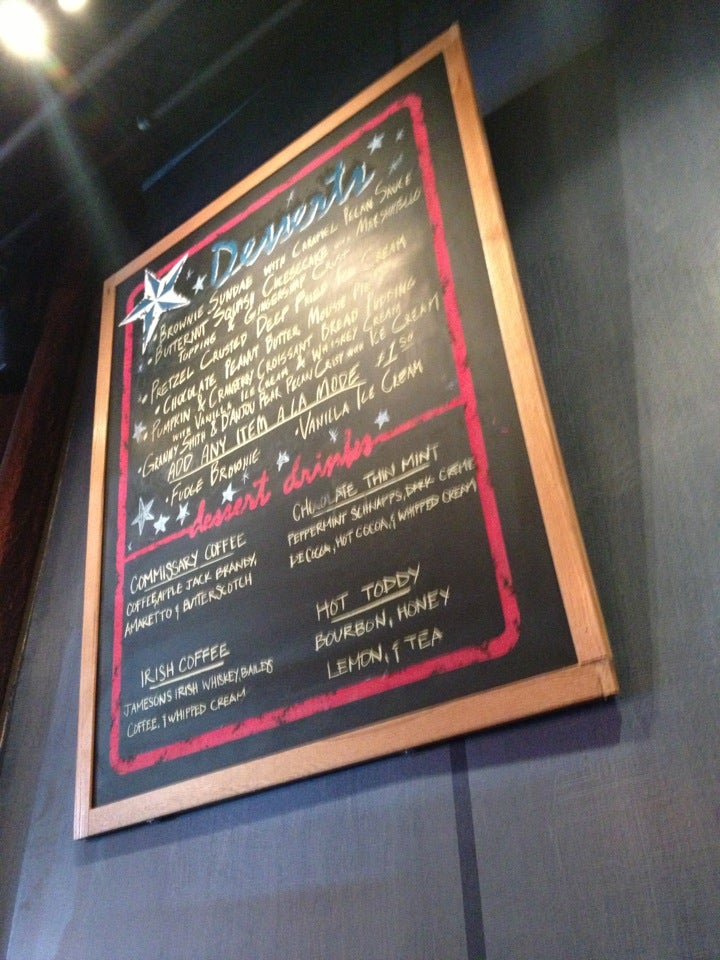 Desserts
• BROWNIE SUNDAE WITH CARAMEL PECAN SAUCE
• BUTTERNUT SQUASH CHEESECAKE WITH MARSHMELLO
TOPPING & GINGERSNAP CRUST
• PRETZEL CRUSTED DEEP FRIED ICE CREAM
• CHOCOLATE PEANUT BUTTER MOUSSE PIE
• PUMPKIN & CRANBERRY CROISSANT BREAD PUDDING
WITH VANILLA ICE CREAM & WHISKEY CREAM
• GRANNY SMITH & D'ANJOU PEAR PECAN CRISP WITH ICE CREAM
ADD ANY ITEM A LA MODE 1.50
• FUDGE BROWNIE • VANILLA ICE CREAM
dessert drinks
COMMISSARY COFFEE
COFFEE, APPLE JACK BRANDY,
AMARETTO & BUTTERSCOTCH
CHOCOLATE THIN MINT
PEPPERMINT SCHNAPPS, DARK CRÈME
DE COCOA, HOT COCOA, & WHIPPED CREAM
IRISH COFFEE
JAMESONS IRISH WHISKEY, BAILEYS
COFFEE, & WHIPPED CREAM
HOT TODDY
BOURBON, HONEY
LEMON, & TEA